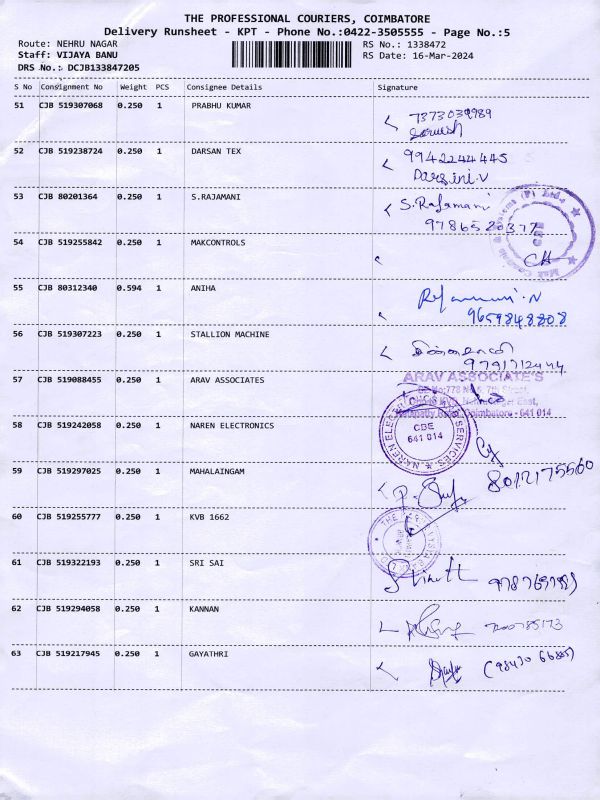 THE PROFESSIONAL COURIERS, COIMBATORE
Delivery Runsheet - KPT - Phone No.:0422-3505555 - Page No.:5
Route: NEHRU NAGAR RS No.: 1338472
Staff: VIJAYA BANU RS Date: 16-Mar-2024
DRS No.: DCJB133847205
S No Consignment No Weight PCS Consignee Details Signature
51 CJB 519307068 0.250 1 PRABHU KUMAR
7373039989
52 CJB 519238724 0.250 1 DARSAN TEX 9942244445
Darsini.V
53 CJB 80201364 0.250 1 S.RAJAMANI S.Rajamani
9786520377
54 CJB 519255842 0.250 1 MAKCONTROLS
55 CJB 80312340 0.594 1 ANIHA
9659848808
56 CJB 519307223 0.250 1 STALLION MACHINE
9791712444
57 CJB 519088455 0.250 1 ARAV ASSOCIATES ARAV ASSOCIATE'S
Coimbatore - 641 014
58 CJB 519242058 0.250 1 NAREN ELECTRONICS
NAREN SERVICES
CBE
641 014
59 CJB 519297025 0.250 1 MAHALAINGAM 8012175560
60 CJB 519255777 0.250 1 KVB 1662
61 CJB 519322193 0.250 1 SRI SAI
62 CJB 519294058 0.250 1 KANNAN
63 CJB 519217945 0.250 1 GAYATHRI